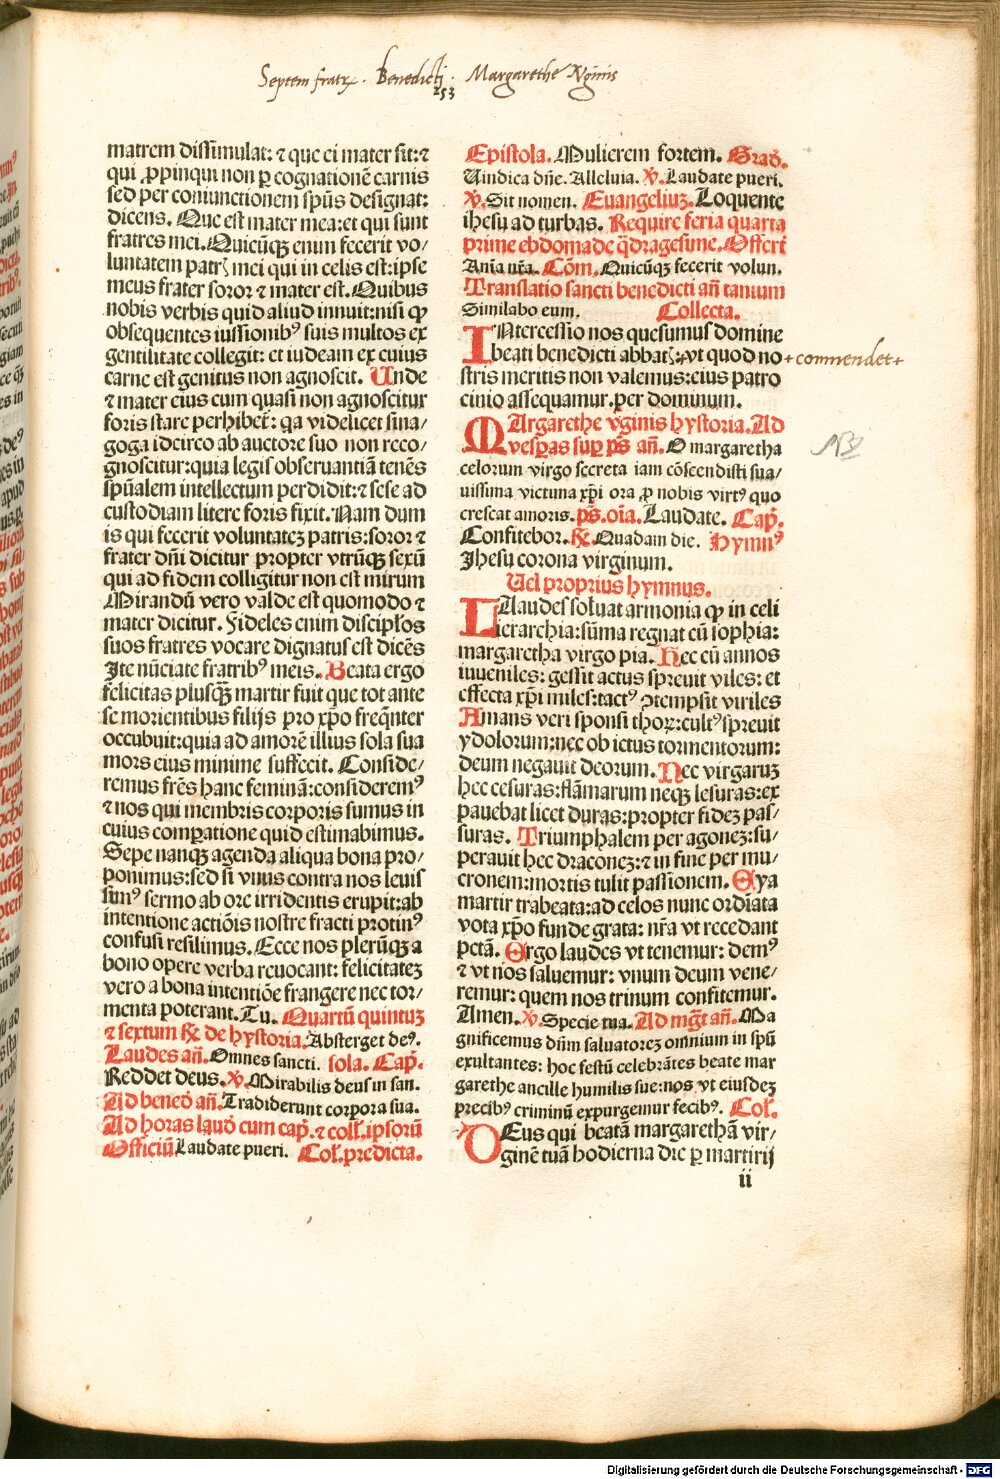 Septem fratrꝭ . Benedictj . Margarethe Vginis
253
matrem dissimulat: ⁊ que ei mater sit: ⁊
qui ꝓpinqui non ꝑ cognationē carnis
sed per coniunctionem spūs designat:
dicens. Que est mater mea: et qui sunt
fratres mei. Quicūqꝫ enim fecerit vo⸗
luntatem patrꝭ mei qui in celis est: ipse
meus frater soror ⁊ mater est. Quibus
nobis verbis quid aliud innuit: nisi ꝙ
obsequentes iussionibꝰ suis multos ex
gentilitate collegit: et iudeam ex cuius
carne est genitus non agnoscit. Unde
⁊ mater eius cum quasi non agnoscitur
foris stare perhibet̄: qa videlicet sina⸗
goga idcirco ab auctore suo non reco⸗
gnoscitur: quia legis obseruantiā tenēs
spūalem intellectum perdidit: ⁊ sese ad
custodiam litere foris fixit. Nam dum
is qui fecerit voluntateꝫ patris: soror ⁊
frater dn̄i dicitur propter vtrūqꝫ sexū
qui ad fidem colligitur non est mirum
Mirandū vero valde est quomodo ⁊
mater dicitur. Fideles enim discipłos
suos fratres vocare dignatus est dicēs
Ite nūciate fratribꝰ meis. Beata ergo
felicitas plusqꝫ martir fuit que tot ante
se morientibus filijs pro xp̄o freq̄nter
occubuit: quia ad amorē illius sola sua
mors eius minime suffecit. Conside⸗
remus frēs hanc feminā: consideremꝰ
⁊ nos qui membris corporis sumus in
cuius comꝑatione quid estimabimus.
Sepe nanqꝫ agenda aliqua bona pro⸗
ponimus: sed si vnus contra nos leuis
simꝰ sermo ab ore irridentis erupit: ab
intentione actiōis nostre fracti protinꝰ
confusi resilimus. Ecce nos plerūqꝫ a
bono opere verba reuocant: felicitateꝫ
vero a bona intentiōe frangere nec tor⸗
menta poterant. Tu. Quartū quintuꝫ
⁊ sextum ꝶ de hystoria. Absterget deꝰ.
Laudes añ. Omnes sancti. sola. Cap̄.
Reddet deus. ℣. Mirabilis deus in san.
Ad bened̄ añ. Tradiderunt corpora sua.
Ad horas laud̄ cum cap̄. ⁊ coll̄. ipsorū
Officiū Laudate pueri. Col̄. predicta.
Epistola. Mulierem fortem. Grad̄.
Uindica dn̄e. Alleluia. ℣. Laudate pueri.
℣. Sit nomen. Euangeliuꝫ. Loquente
ihesu ad turbas. Require feria quarta
prime ebdomade q̄dragesime. Offert̄
Anīa nr̄a. Cōm. Quicūqꝫ fecerit volun.
Translatio sancti benedicti añ tantum
Similabo eum. Collecta.
INtercessio nos quesumus domine
beati benedicti abbatꝭ: + vt quod no + commendet +
stris meritis non valemus: eius patro
cinio assequamur. per dominum.
MArgarethe v̄ginis hystoria. Ad
vesꝑas suꝑ pš añ. O margaretha
celorum virgo secreta iam cōscendisti sua⸗
uissima victima xp̄i ora ꝓ nobis virtꝰ quo
crescat amoris. pš. oīa. Laudate. Cap̄.
Confitebor. ꝶ. Quadam die. Hymnꝰ
Ihesu corona virginum.
Uel proprius hymnus.
LAudes soluat armonia ꝙ in celi
ierarchia: sūma regnat cū sophia:
margaretha virgo pia. Hec cū annos
iuueniles: gessit actus spreuit viles: et
effecta xp̄i miles: tactꝰ ꝯtempsit viriles
Amans veri sponsi thorꝫ: cultꝰ spreuit
ydolorum: nec ob ictus tormentorum:
deum negauit deorum. Nec virgaruꝫ
hec cesuras: flāmarum neqꝫ lesuras: ex
pauebat licet duras: propter fideꝫ pas⸗
suras. Triumphalem per agoneꝫ: su⸗
perauit hec draconeꝫ: ⁊ in fine per mu⸗
cronem: mortis tulit passionem. Eya
martir trabeata: ad celos nunc ordīata
vota xp̄o funde grata: nr̄a vt recedant
pctā. Ergo laudes vt tenemur: demꝰ
⁊ vt nos saluemur: vnum deum vene⸗
remur: quem nos trinum confitemur.
Amen. ℣. Specie tua. Ad mḡt añ. Ma
gnificemus dūm saluatoreꝫ omnium in spū
exultantes: hoc festū celebrātes beate mar
garethe ancille humilis sue: nos vt eiusdeꝫ
precibꝰ criminū expurgemur fecibꝰ. Col̄.
DEus qui beatā margarethā vir⸗
ginē tuā hodierna die ꝑ martirij
ii
NB
Digitalisierung gefördert durch die Deutsche Forschungsgemeinschaft - DFG